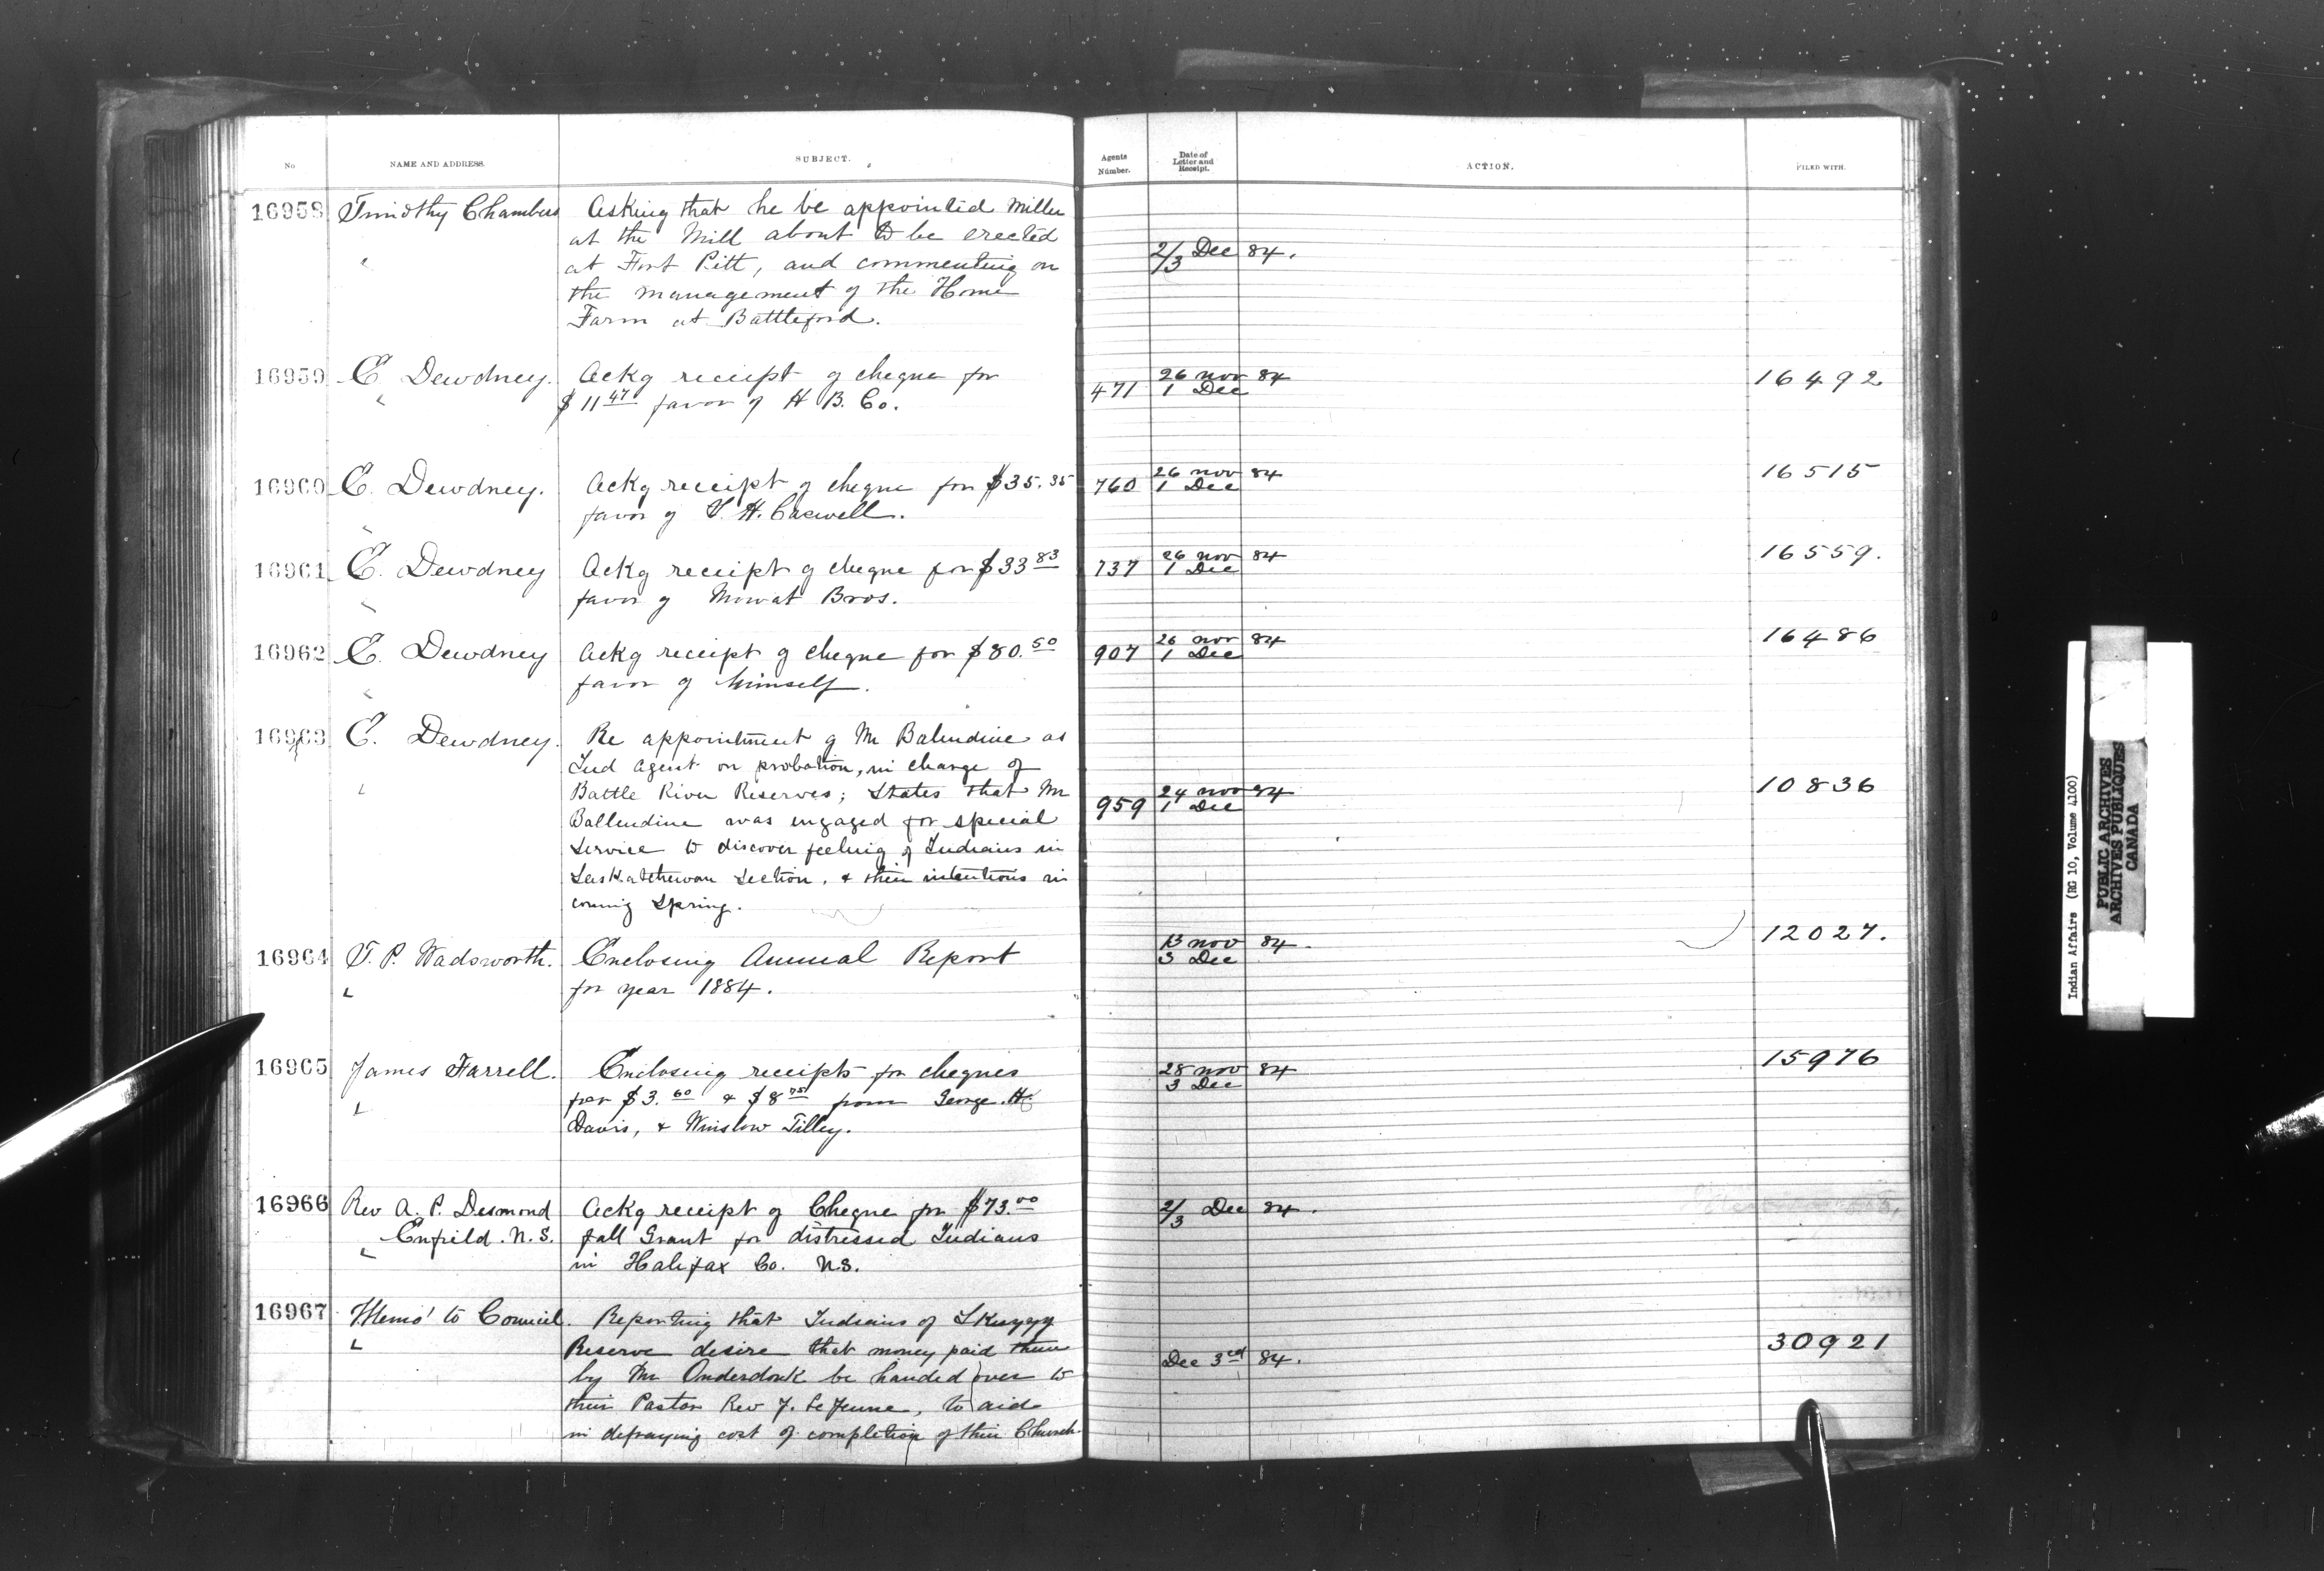 No NAME AND ADDRESS. SUBJECT. Agents Number. Date of Letter and Receipt. ACTION. FILED WITH.
16958 Timothy Chambers Asking that he be appointed Miller
at the Mill about to be erected 2/3 Dec 84.
at Fort Pitt, and commenting on
the management of the Home
Farm at Battleford.
16959 E. Dewdney. Ackg receipt of cheque for 471 26 Nov 84 16492
$11 47 favor of H B. Co. 1 Dec
16960 E. Dewdney. Ackg receipt of cheque for $35.35 760 26 Nov 84 16515
favor of H. Caswell. 1 Dec
16961 E. Dewdney Ackg receipt of cheque for $33 83 737 26 Nov 84 16559.
favor of Mowat Bros. 1 Dec
16962 E. Dewdney Ackg receipt of cheque for $80.50 907 26 Nov 84 16486
favor of himself. 1 Dec
16963 E. Dewdney. Re appointment of Mr Balendine as
Ind Agent on probation, in charge of
Battle River Reserves; States that Mr 959 24 Nov 84 10836
Ballendine was engaged for special 1 Dec
service to discover feeling of Indians in
Saskatchewan Section, & their intentions in
coming Spring.
16964 T. P. Wadsworth. Enclosing Annual Report 13 Nov 84. 12027.
for year 1884. 3 Dec
16965 James Farrell. Enclosing receipts for cheques 28 Nov 84 15976
for $3.60 & $8 75 from George H. 3 Dec
Davis, & Winslow Tilley.
16966 Rev A. P. Desmond Ackg receipt of Cheque for $73.00 2/3 Dec 84.
Enfield. N.S. fall Grant for distressed Indians
in Halifax Co. N.S.
16967 Memo' to Council. Reporting that Indians of
Reserve desire that money paid them Dec 3rd 84. 30921
by Mr Onderdonk be handed over to
their Pastor Rev J. Le Jeune, to aid
in defraying cost of completion of their Church.
Indian Affairs (RG 10, Volume 4100)
PUBLIC ARCHIVES
ARCHIVES PUBLIQUES
CANADA